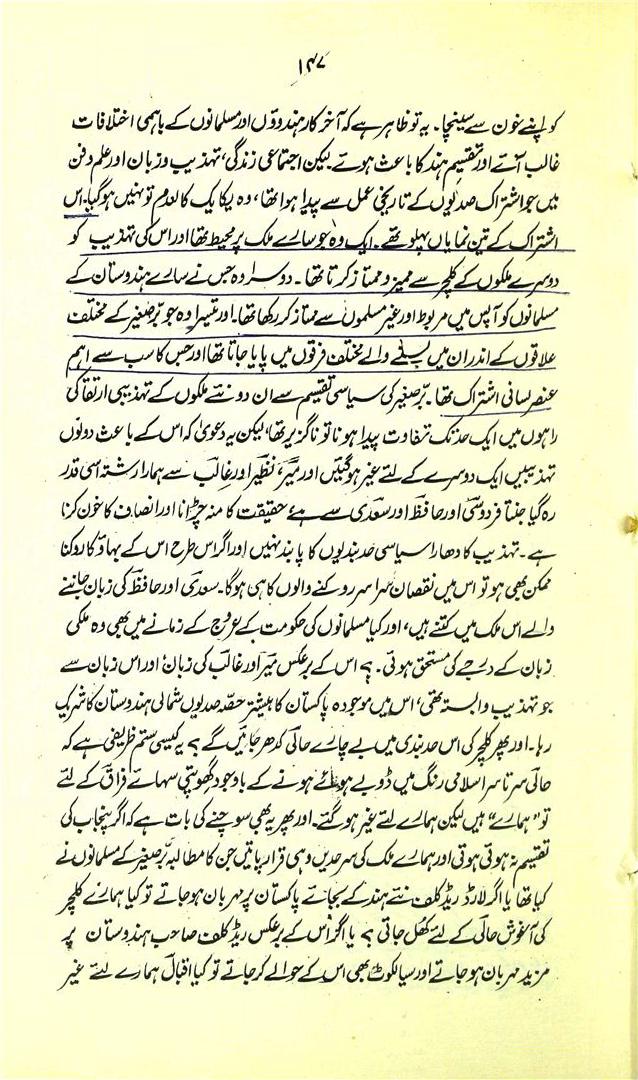 ۱۴۷
کو اپنے خون سے سینچا۔ یہ تو ظاہر ہے کہ آخر کار ہندوؤں اور مسلمانوں کے باہمی اختلافات
غالب آئے اور تقسیمِ ہند کا باعث ہوئے لیکن اجتماعی زندگی، تہذیب و زبان اور علم و فن
میں جو اشتراک صدیوں کے تاریخی عمل سے پیدا ہوا تھا، وہ یکایک کالعدم تو نہیں ہو گیا۔ اس
اشتراک کے تین نمایاں پہلو تھے۔ ایک وہ جو سارے ملک پر محیط تھا اور اس کی تہذیب کو
دوسرے ملکوں کے کلچر سے ممیز و ممتاز کرتا تھا۔ دوسرا وہ جس نے سارے ہندوستان کے
مسلمانوں کو آپس میں مربوط اور غیر مسلموں سے ممتاز کر رکھا تھا۔ اور تیسرا وہ جو برّصغیر کے مختلف
علاقوں کے اندر ان میں بسنے والے مختلف فرقوں میں پایا جاتا تھا اور جس کا سب سے اہم
عنصر لسانی اشتراک تھا۔ برّصغیر کی سیاسی تقسیم سے ان دو نئے ملکوں کے تہذیبی ارتقا کی
راہوں میں ایک حد تک تفاوت پیدا ہونا تو ناگزیر تھا، لیکن یہ دعویٰ کہ اس کے باعث دونوں
تہذیبیں ایک دوسرے کے لئے غیر ہو گئیں اور میرؔ، نظیرؔ اور غالبؔ سے ہمارا رشتہ اسی قدر
رہ گیا جتنا فردوسیؔ اور حافظؔ اور سعدیؔ سے ہے، حقیقت کا منہ چڑانا اور انصاف کا خون کرنا
ہے۔ تہذیب کا دھارا سیاسی حد بندیوں کا پابند نہیں اور اگر اس طرح اس کے بہاؤ کا روکنا
ممکن بھی ہو تو اس میں نقصان سراسر روکنے والوں کا ہی ہوگا۔ سعدیؔ اور حافظؔ کی زبان جاننے
والے اس ملک میں کتنے ہیں، اور کیا مسلمانوں کی حکومت کے عروج کے زمانے میں بھی وہ ملکی
زبان کے درجے کی مستحق ہوئی۔ ؟ اس کے برعکس میرؔ اور غالبؔ کی زبان اور اس زبان سے
جو تہذیب وابستہ تھی، اس میں موجودہ پاکستان کا بیشتر حصّہ صدیوں شمالی ہندوستان کا شریک
رہا۔ اور پھر کلچر کی اس حد بندی میں بے چارے حالیؔ کدھر جائیں گے ؟ یہ کیسی ستم ظریفی ہے کہ
حالیؔ سرتاسر اسلامی رنگ میں ڈوبے ہوئے ہونے کے باوجود رگھوپتی سہائے فراقؔ کے لئے
تو "ہمارے" ہیں لیکن ہمارے لئے غیر ہو گئے۔ اور پھر یہ بھی سوچنے کی بات ہے کہ اگر پنجاب کی
تقسیم نہ ہوئی ہوتی اور ہمارے ملک کی سرحدیں وہی قرار پاتیں جن کا مطالبہ برّصغیر کے مسلمانوں نے
کیا تھا یا اگر لارڈ ریڈ کلف نئے ہند کے بجائے پاکستان پر مہربان ہو جاتے تو کیا ہمارے کلچر
کی آغوش حالیؔ کے لئے کھل جاتی ؟ یا اگر اس کے برعکس ریڈ کلف صاحب ہندوستان پر
مزید مہربان ہو جاتے اور سیالکوٹ بھی اس کے حوالے کر جاتے تو کیا اقبالؔ ہمارے لئے غیر